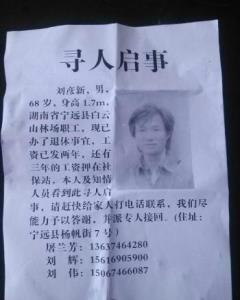 寻人启事
刘彦新，男，
68岁，身高1.7m，
湖南省宁远县白云
山林场职工，现已
办了退休事宜，工
资已发两年，还有
三年的工资押在社
保站，本人及知情
人员看到此寻人启
事，请赶快给家人打电话联系，我们尽
能力予以答谢，并派专人接回。（住址：
宁远县杨帆街7号）
屠兰芳：13637464280
刘 辉：15616905900
刘 伟：15067466087